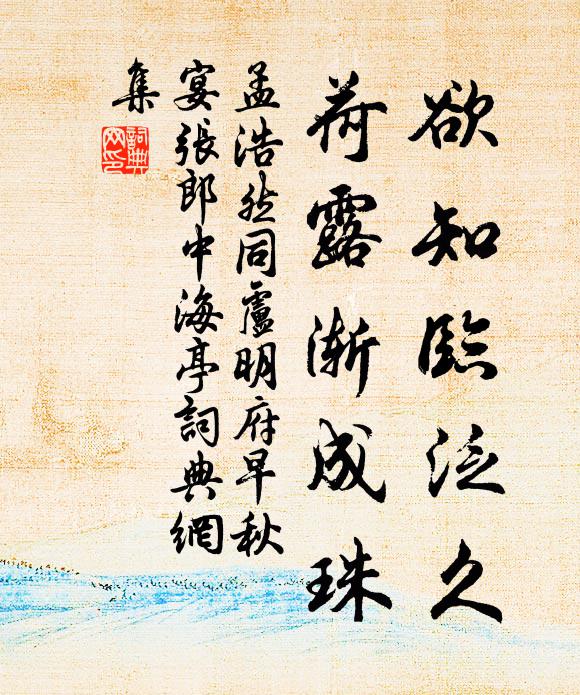 欲知臨泛久
荷露漸成珠
孟浩然同盧明府早秋
宴張郎中海亭詞典網
集
詞典網印